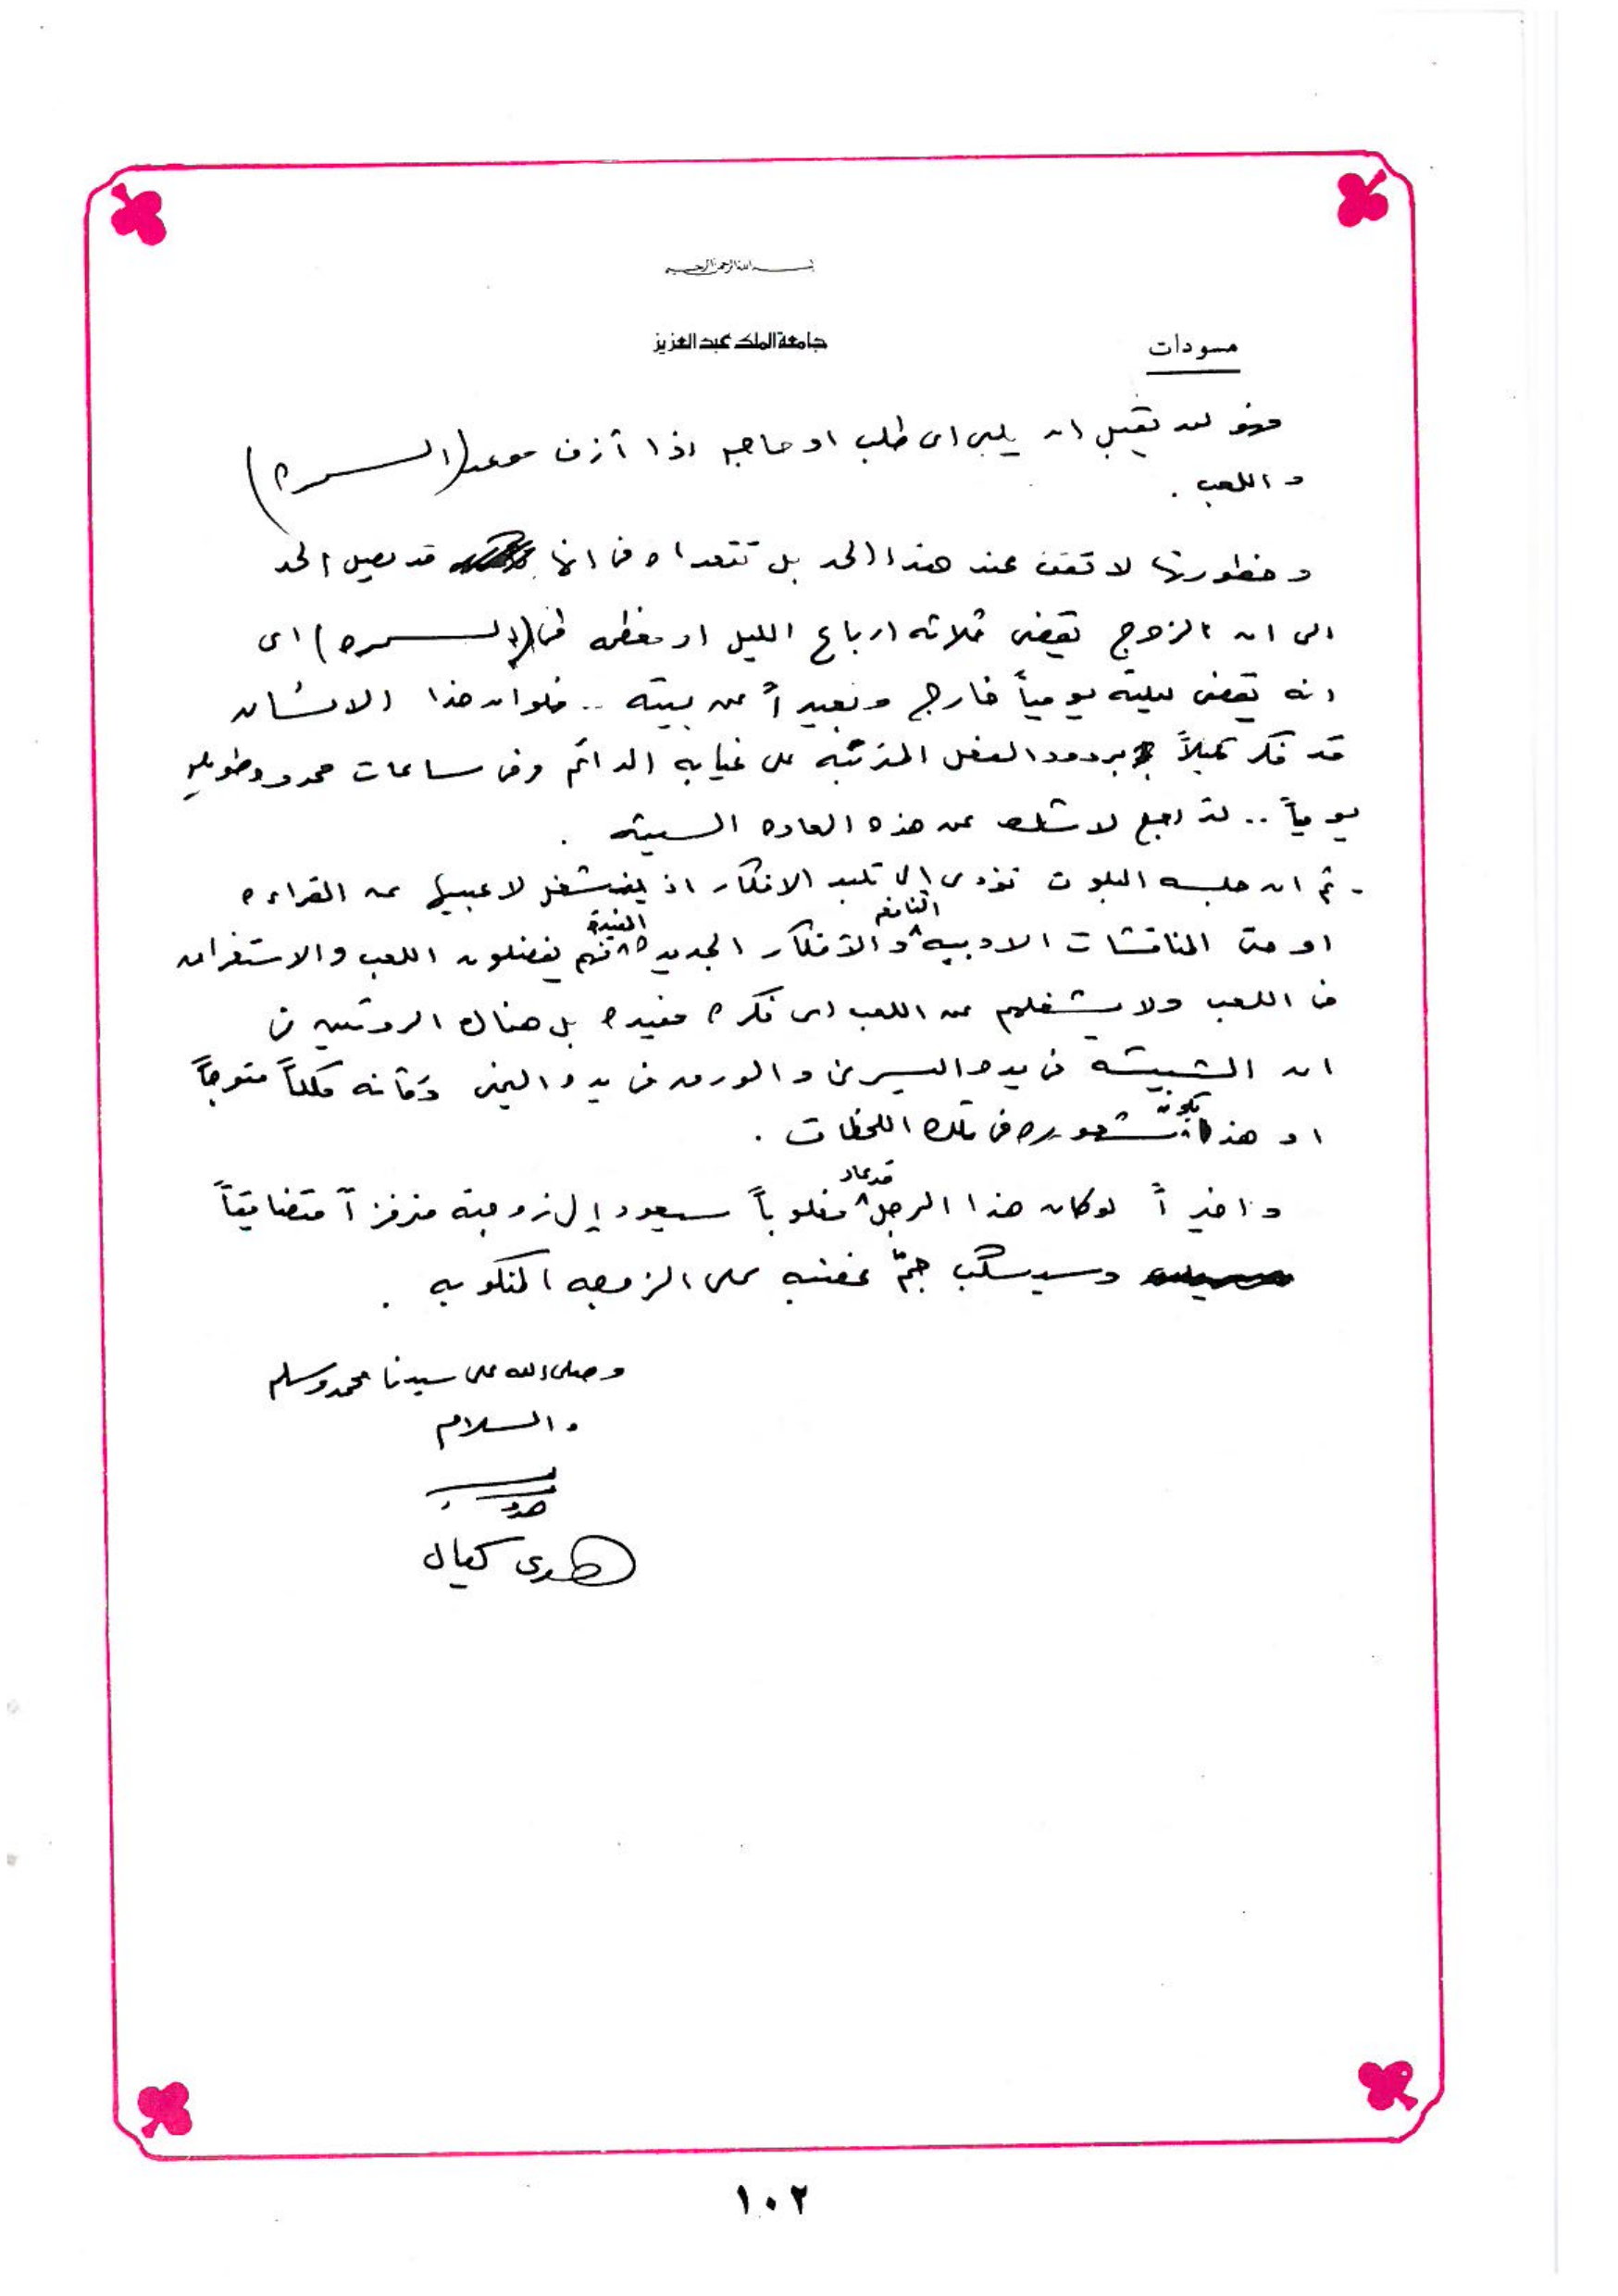 بسم الله الرحمن الرحيم
جامعة الملك عبد العزيز
مسودات
فهو لن يقبل ان يلبى اى طلب او حاجه اذا أزف موعد (السمره)
واللعب .
وخطورتها لا تقف عند هذا الحد بل تتعداه فى انها قد يصل الحد
الى ان الزوج يقضى ثلاثه ارباع الليل او معظمه فى (السمره) اى
انه يقضى ليلته يومياً خارج وبعيداً عن بيته .. فلو ان هذا الانسان
قد فكر قليلاً بردود الفعل المترتبه على غيابه الدائم وفى ساعات طويله
يومياً .. لتراجع لا شك عن هذه العاده السيئه .
- ثم ان جلسه البلوت تؤدى الى تلبد الافكار اذ ينشغل لاعبيها عن القراءه
او حتى المناقشات الادبيه النافعه والافكار الجديده المفيدة فهم يفضلون اللعب والاستغراق
فى اللعب ولا يشغلهم عن اللعب اى فكره مفيده بل هناك الروتين فى
ان الشيشه فى يده اليسرى والورق فى يده اليمنى وكأنه ملكاً متوجاً
او هذا يكون شعوره فى تلك اللحظات .
واخيراً لو كان هذا الرجل قد عاد مغلوباً سيعود إلى زوجته منرفزاً متضايقاً
وسيسكب جمّ غضبه على الزوجه المنكوبه .
وصلى الله على سيدنا محمد وسلم
والسلام
هدى كيال
١٠٢